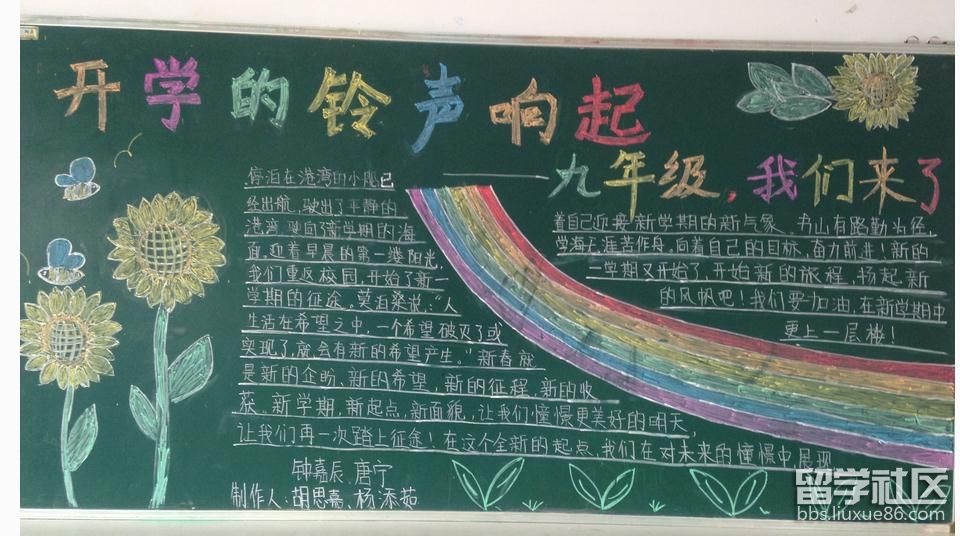 开学的铃声响起
——九年级，我们来了
停泊在港湾的小船已
经出航，驶出了平静的
港湾，驶向了新学期的海
面，迎着早晨的第一缕阳光，
我们重返校园，开始了新一
学期的征途。莫泊桑说：“人
生活在希望之中，一个希望破灭了或
实现了，就会有新的希望产生。”新春就
是新的企盼、新的希望，新的征程，新的收
获。新学期，新起点，新面貌，让我们憧憬更美好的明天，
让我们再一次踏上征途！在这个全新的起点，我们在对未来的憧憬中展现
着自己迎接新学期的新气象。书山有路勤为径，
学海无涯苦作舟，向着自己的目标，奋力前进！新的
一学期又开始了，开始新的旅程，扬起新
的风帆吧！我们要加油，在新学期中
更上一层楼！
钟嘉辰、唐宁
制作人：胡思嘉、杨添茹
留学社区
bbs.liuxue86.com